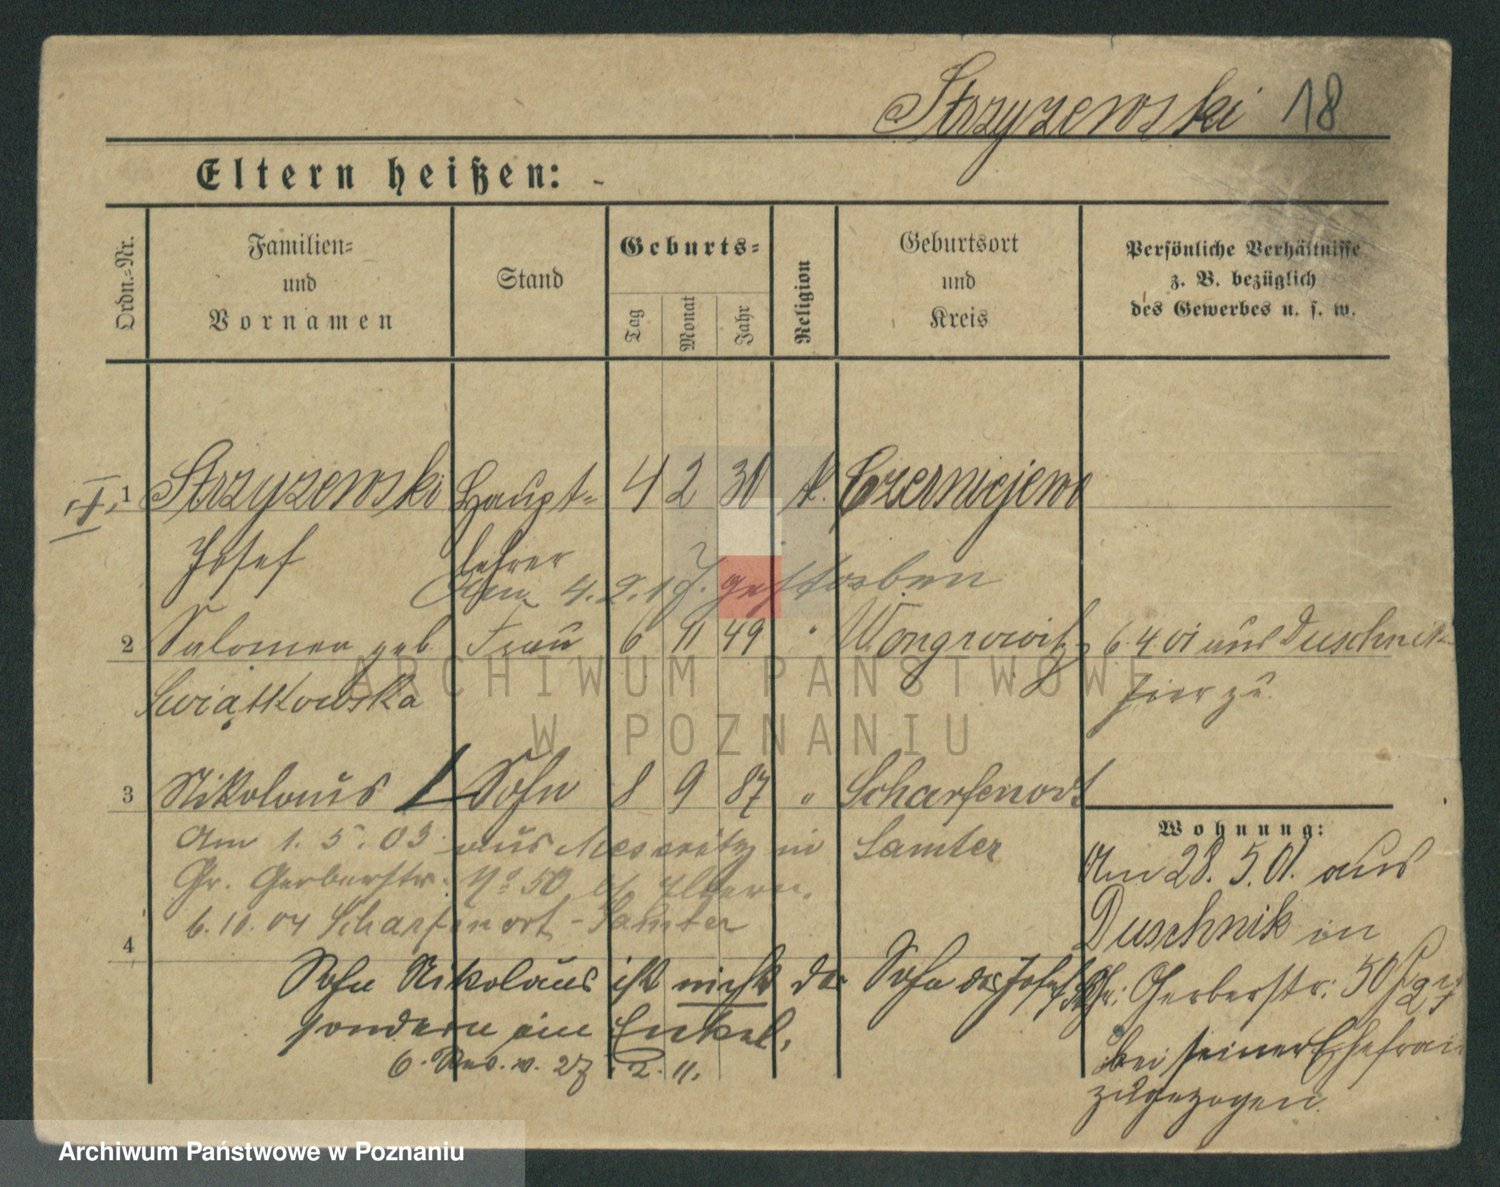 Strzyzewski 18
Eltern heißen: -
Ordn.-Nr.
Familien-
und
Vornamen
Stand
Geburts-
Tag
Monat
Jahr
Religion
Geburtsort
und
Kreis
Persönliche Verhältnisse
z. B. bezüglich
des Gewerbes u. s. w.
1 Strzyzewski Haupt- 4 2 30 k. Czerniejewo
Josef lehrer
Am 4.2.17. gestorben
2 Salomea geb. Frau 6 11 49 " Wongrowitz 6.4 01 aus Duschnik
Swiątkowska hier zu.
ARCHIWUM PAŃSTWOWE
W POZNANIU
3 Nikolaus Sohn 8 9 87 " Scharfenort
Samter
Am 1. 5. 03 aus Meseritz in
Gr. Gerberstr. No 50 Eltern.
6.10.04 Scharfenort - Samter
4
Sohn Nikolaus ist nicht der Sohn des Josef St.
sondern ein Enkel.
6. Rev. v. 27. 2. 11.
Wohnung:
Am 28. 5. 01. aus
Duschnik in
Gr. Gerberstr. 50
bei seiner Ehefrau
zugezogen.
Archiwum Państwowe w Poznaniu